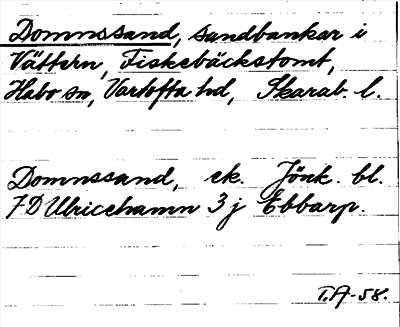 Domnssand, sandbankar i
Vättern, Fiskebäckstomt,
Habo sn, Vartofta hd, Skarab. l.
Domnssand, ek. Jönk. bl.
7D Ulricehamn 3 j Ebbarp.
T.A-58.